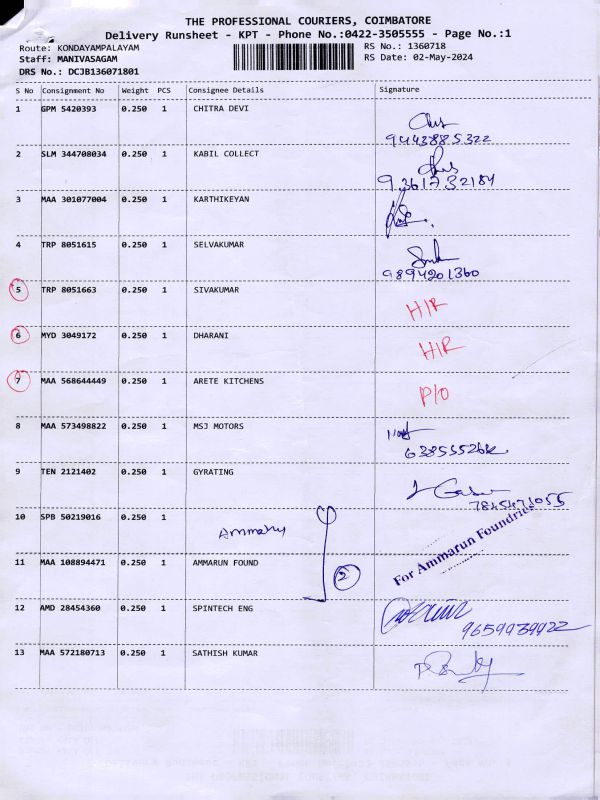 THE PROFESSIONAL COURIERS, COIMBATORE
Delivery Runsheet - KPT - Phone No.:0422-3505555 - Page No.:1
Route: KONDAYAMPALAYAM RS No.: 1360718
Staff: MANIVASAGAM RS Date: 02-May-2024
DRS No.: DCJB136071801
S No Consignment No Weight PCS Consignee Details Signature
1 GPM 5420393 0.250 1 CHITRA DEVI
9443885322
2 SLM 344708034 0.250 1 KABIL COLLECT
9361732184
3 MAA 301077004 0.250 1 KARTHIKEYAN
4 TRP 8051615 0.250 1 SELVAKUMAR
9894201360
5 TRP 8051663 0.250 1 SIVAKUMAR H/R
6 MYD 3049172 0.250 1 DHARANI H/R
7 MAA 568644449 0.250 1 ARETE KITCHENS P/O
8 MAA 573498822 0.250 1 MSJ MOTORS
9 TEN 2121402 0.250 1 GYRATING
10 SPB 50219016 0.250 1
11 MAA 108894471 0.250 1 AMMARUN FOUND 2 For Ammarun Foundries
12 AMD 28454360 0.250 1 SPINTECH ENG
9659939922
13 MAA 572180713 0.250 1 SATHISH KUMAR